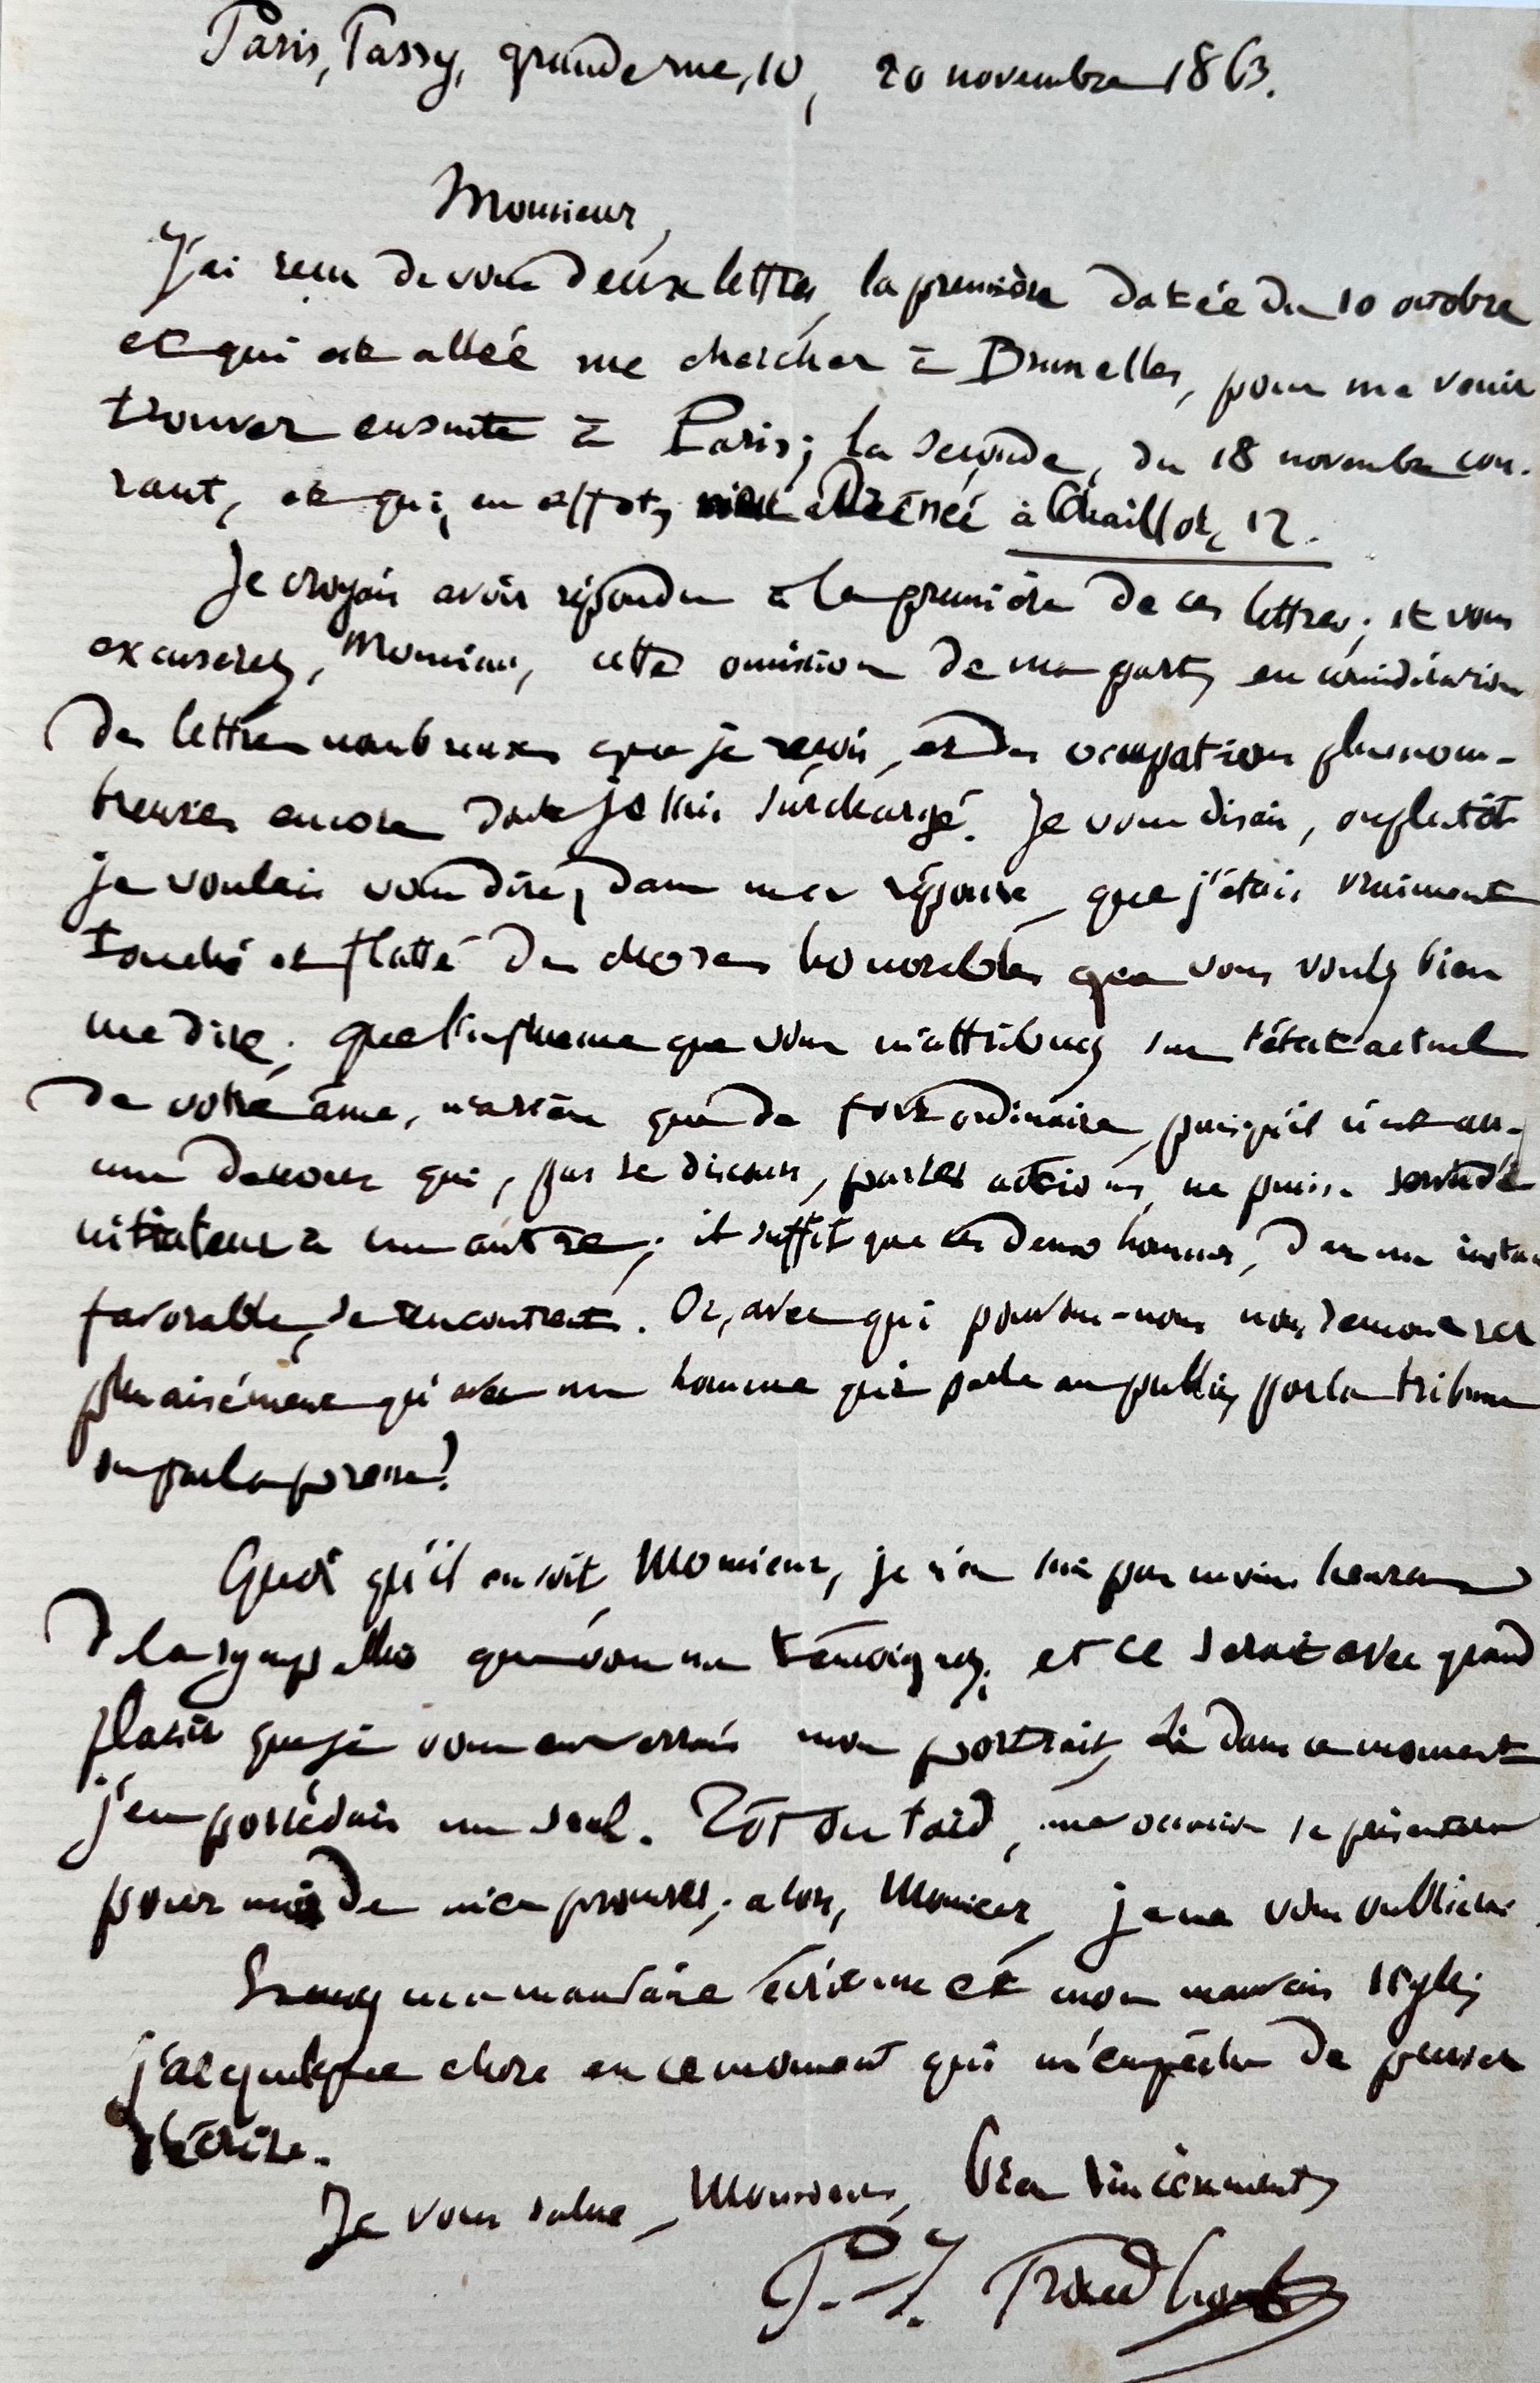 Paris, Passy, grande rue, 10, 20 novembre 1863.
Monsieur,
J'ai reçu de vous deux lettres, la première datée du 10 octobre
et qui est allée me chercher à Bruxelles, pour me venir
trouver ensuite à Paris; la seconde, du 18 novembre cou-
rant, et qui, en effet, adressée à Chaillot, 12.
Je croyais avoir répondu à la première de ces lettres; et vous
excuserez, Monsieur, cette omission de ma part, en considération
des lettres nombreuses que je reçois, et des occupations plus nom-
breuses encore dont je suis surchargé. Je vous disais, ou plutôt
je voulais vous dire, dans ma réponse, que j'étais vraiment
touché et flatté des choses honorables que vous voulez bien
me dire; que l'influence que vous m'attribuez sur l'état actuel
de votre âme, n'a rien que de fort ordinaire, puisqu'il n'est au-
cun de nous qui, par le discours, par les actions, ne puisse servir d'i
nitiateur à un autre; il suffit que ces deux hommes, dans un instant
favorable, se rencontrent. Or, avec qui pouvons-nous nous rencontrer
plus aisément qu'avec un homme qui parle au public, par la tribune
ou par la presse?
Quoi qu'il en soit, Monsieur, je n'en suis pas moins heureux
de la sympathie que vous me témoignez; et ce serait avec grand
plaisir que je vous enverrais mon portrait, si dans ce moment
j'en possédais un seul. Tôt ou tard, une occasion se présentera
pour moi de m'en procurer; alors, Monsieur, je ne vous oublierai.
Excusez ma mauvaise écriture et mon mauvais style;
j'ai quelque chose en ce moment qui m'empêche de penser
d'écrire.
Je vous salue, Monsieur, bien sincèrement,
P.-J. Proudhon